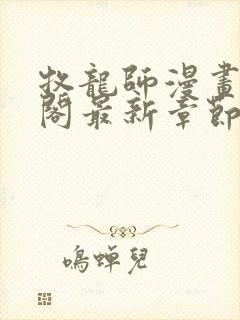 牧龍師漫畫
閣最新章節
鳴蟬兒